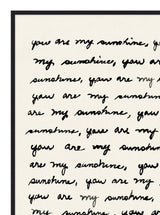 you are my sunshine, y
my, sunshine, you ar
sunshine, you are my
you are my sunshin
are my sunshine, you
sunshine, you are my
you are my sunshine
are my sunshine, you
sunshine, you are my
you are my sunshine,
my sunshine, you